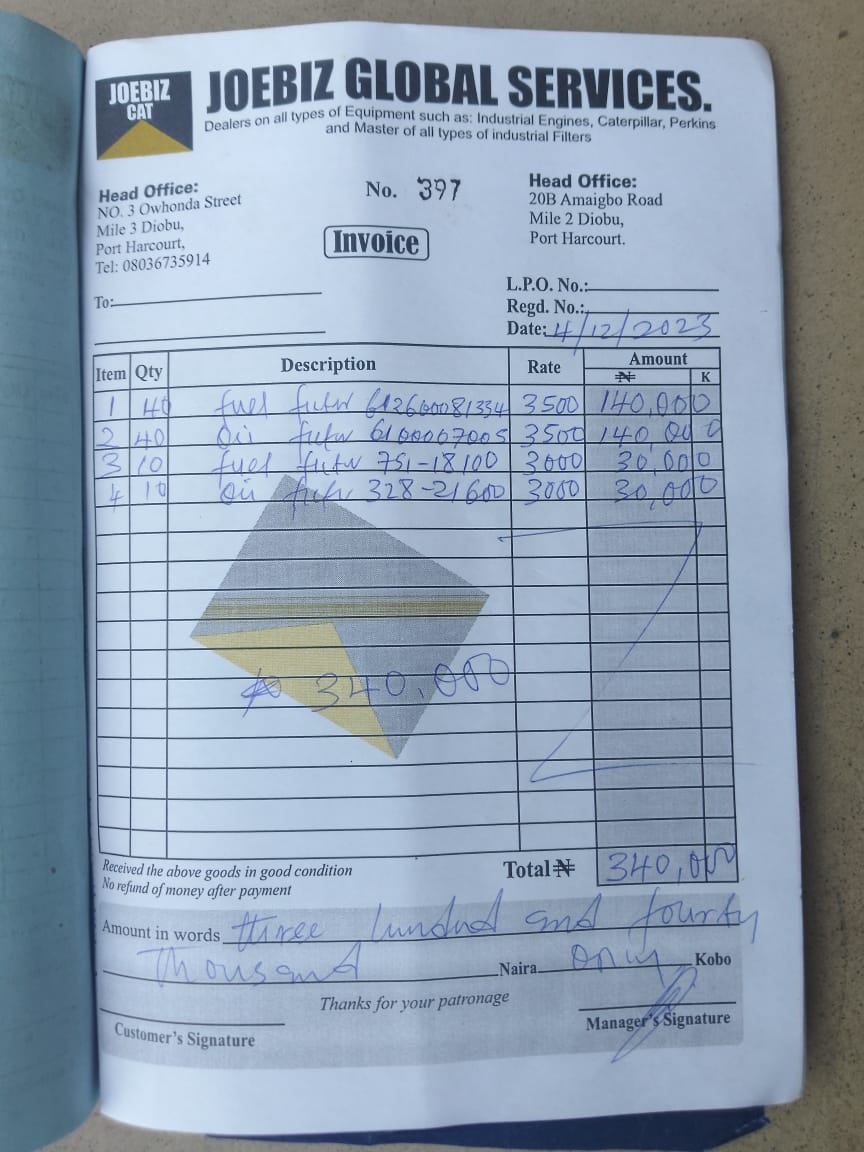 JOEBIZ
CAT
JOEBIZ GLOBAL SERVICES.
Dealers on all types of Equipment such as: Industrial Engines, Caterpillar, Perkins
and Master of all types of industrial Filters
Head Office:
NO. 3 Owhonda Street
Mile 3 Diobu,
Port Harcourt,
Tel: 08036735914
No. 397
Invoice
Head Office:
20B Amaigbo Road
Mile 2 Diobu,
Port Harcourt.
To:
L.P.O. No.:
Regd. No.:
Date: 4/12/2023
Item Qty Description Rate Amount
₦ K
1 40 fuel 612600081334 3500 140,000
2 40 6100067005 3500 140,000
3 10 fuel 751-18100 3000 30,000
4 10 328-21600 3000 30,000
₦ 340,000
Received the above goods in good condition
No refund of money after payment
Total ₦ 340,000
Amount in words three hundred and fourty
thousand Naira only Kobo
Thanks for your patronage
Customer's Signature
Manager's Signature